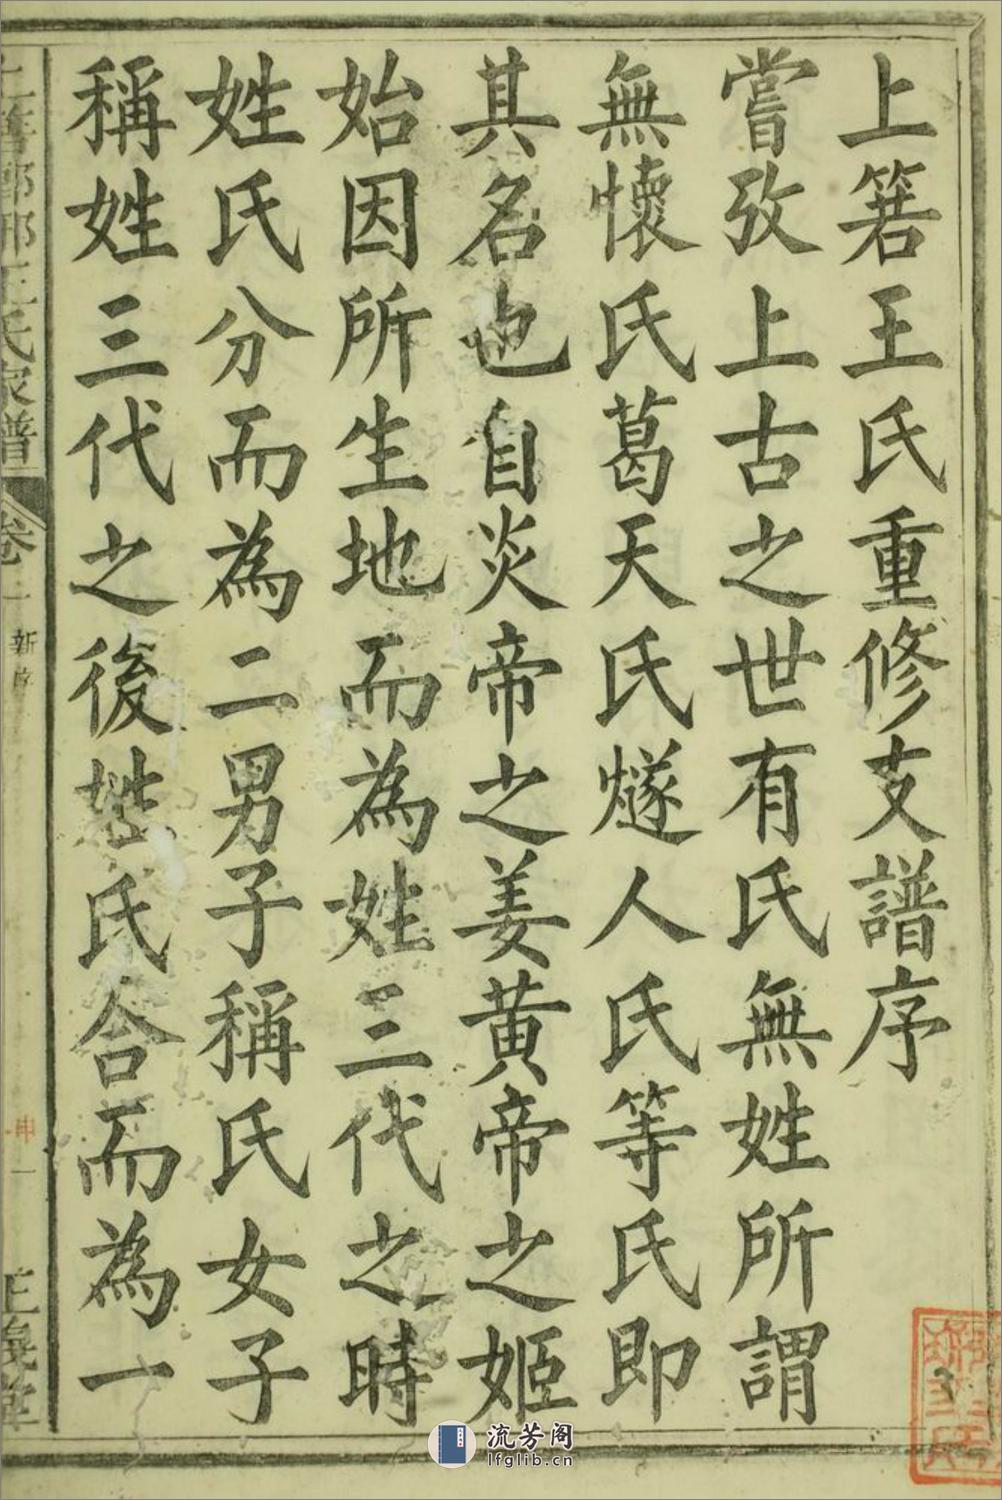 上箬王氏重修支譜序
嘗攷上古之世有氏無姓所謂
無懷氏葛天氏燧人氏等氏即
其名也自炎帝之姜黄帝之姬
始因所生地而為姓三代之時
姓氏分而為二男子稱氏女子
稱姓三代之後姓氏合而為一
王氏家譜
卷一
新序
流芳阁
lfglib.cn